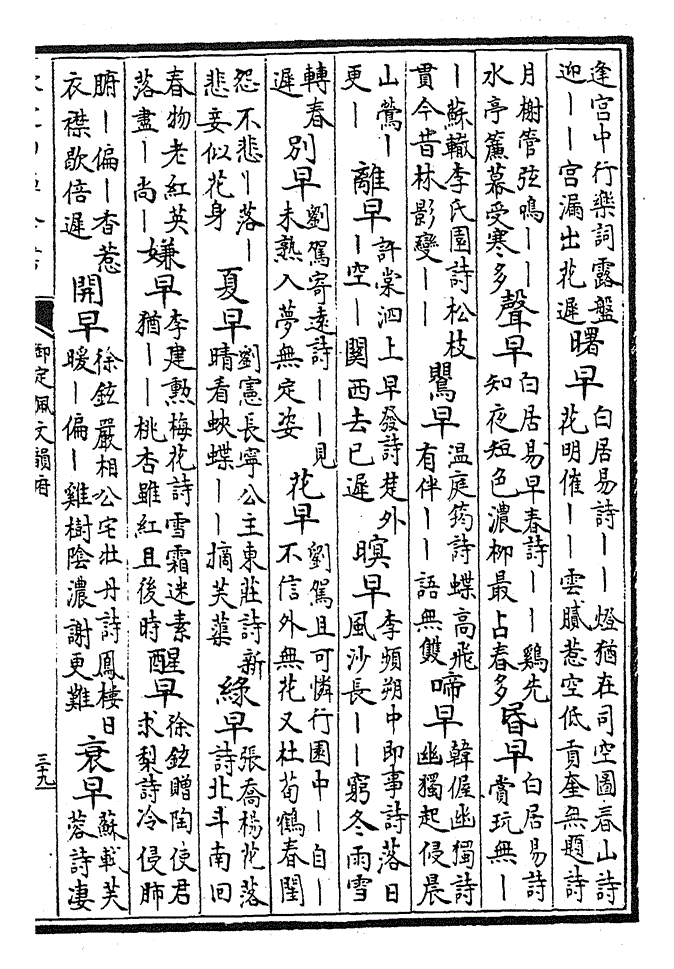 逢宫中行樂詞露盤
迎丨丨宫漏出花遲
曙早
白居易詩丨丨燈猶在司空圖春山詩
花明催丨丨雲膩惹空低貢奎無題詩
月榭管弦鳴丨丨
水亭簾幕受寒多
聲早
白居易早春詩丨丨鷄先
知夜短色濃柳最占春多
昬早
白居易詩
賞玩無丨
丨蘇轍李氏園詩松枝
貫今昔林影變丨丨
鸎早
温庭筠詩蝶高飛
有伴丨丨語無雙
啼早
韓偓幽獨詩
幽獨起侵晨
山鶯丨
更丨
離早
許棠泗上早發詩楚外
丨空丨關西去已遲
暝早
李頻朔中即事詩落日
風沙長丨丨窮冬雨雪
轉春
遲
別早
劉駕寄遠詩丨丨見
未熟入夢無定姿
花早
劉駕且可憐行園中丨自丨
不信外無花又杜荀鶴春閨
怨不悲丨落丨
悲妾似花身
夏早
劉憲長寧公主東莊詩新
晴看蛺蝶丨丨摘芙蕖
綠早
張喬楊花落
詩北斗南回
春物老紅英
落盡丨尚丨
嫌早
李建勳梅花詩雪霜迷素
猶丨丨桃杏雖紅且後時
醒早
徐鉉贈陶使君
求梨詩冷侵肺
腑丨偏丨香惹
衣襟歇倍遲
開早
徐鉉嚴相公宅牡丹詩鳳樓日
暖丨偏丨雞樹陰濃謝更難
衰早
蘇軾芙
蓉詩凄
御定佩文韻府
三十九